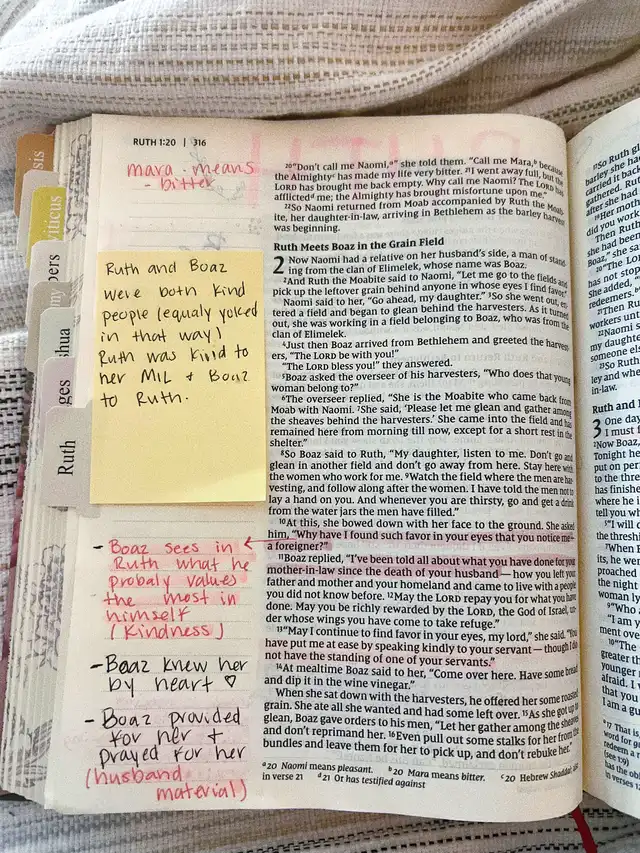 RUTH 1:20 | 316
mara - means
- bitter
Ruth and Boaz
were both kind
people (equaly yolked
in that way)
Ruth was kind to
her MIL + Boaz
to Ruth.
- Boaz sees in
Ruth what he
probaly values
the most in
himself
(Kindness)
- Boaz knew her
by heart ♡
- Boaz provided
for her +
prayed for her
(husband
material)
sis
viticus
bers
my
shua
ges
Ruth
20"Don't call me Naomi,a" she told them. "Call me Mara,b because
the Almightyc has made my life very bitter. 21I went away full, but the
LORD has brought me back empty. Why call me Naomi? The LORD has
afflictedd me; the Almighty has brought misfortune upon me."
22So Naomi returned from Moab accompanied by Ruth the Moab-
ite, her daughter-in-law, arriving in Bethlehem as the barley harvest
was beginning.
Ruth Meets Boaz in the Grain Field
2 Now Naomi had a relative on her husband's side, a man of stand-
ing from the clan of Elimelek, whose name was Boaz.
2And Ruth the Moabite said to Naomi, "Let me go to the fields and
pick up the leftover grain behind anyone in whose eyes I find favor."
Naomi said to her, "Go ahead, my daughter." 3So she went out, en-
tered a field and began to glean behind the harvesters. As it turned
out, she was working in a field belonging to Boaz, who was from the
clan of Elimelek.
4Just then Boaz arrived from Bethlehem and greeted the harvest-
ers, "The LORD be with you!"
"The LORD bless you!" they answered.
5Boaz asked the overseer of his harvesters, "Who does that young
woman belong to?"
6The overseer replied, "She is the Moabite who came back from
Moab with Naomi. 7She said, 'Please let me glean and gather among
the sheaves behind the harvesters.' She came into the field and has
remained here from morning till now, except for a short rest in the
shelter."
8So Boaz said to Ruth, "My daughter, listen to me. Don't go and
glean in another field and don't go away from here. Stay here with
the women who work for me. 9Watch the field where the men are har-
vesting, and follow along after the women. I have told the men not to
lay a hand on you. And whenever you are thirsty, go and get a drink
from the water jars the men have filled."
10At this, she bowed down with her face to the ground. She asked
him, "Why have I found such favor in your eyes that you notice me—
a foreigner?"
11Boaz replied, "I've been told all about what you have done for your
mother-in-law since the death of your husband—how you left your
father and mother and your homeland and came to live with a people
you did not know before. 12May the LORD repay you for what you have
done. May you be richly rewarded by the LORD, the God of Israel, un-
der whose wings you have come to take refuge."
13"May I continue to find favor in your eyes, my lord," she said. "You
have put me at ease by speaking kindly to your servant—though I do
not have the standing of one of your servants."
14At mealtime Boaz said to her, "Come over here. Have some bread
and dip it in the wine vinegar."
When she sat down with the harvesters, he offered her some roasted
grain. She ate all she wanted and had some left over. 15As she got up to
glean, Boaz gave orders to his men, "Let her gather among the sheaves
and don't reprimand her. 16Even pull out some stalks for her from the
bundles and leave them for her to pick up, and don't rebuke her."
a20 Naomi means pleasant. b20 Mara means bitter. c20 Hebrew Shaddai;
in verse 21 d21 Or has testified against